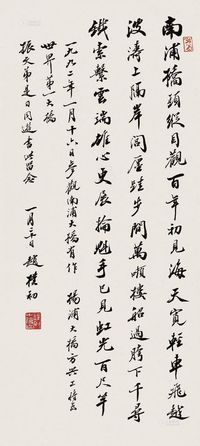 南浦橋頭縱目觀百年初見海天寬輕車飛越
波濤上隔岸闤廛跬步間萬頃樓船過胯下千尋
鐵索繫雲端雄心更展掄魁手已見虹光百尺竿
一九九二年一月十六日參觀南浦大橋有作 楊浦大橋方興工
世界第一大橋
振天弟是日同遊書此留念
一月 日 趙樸初